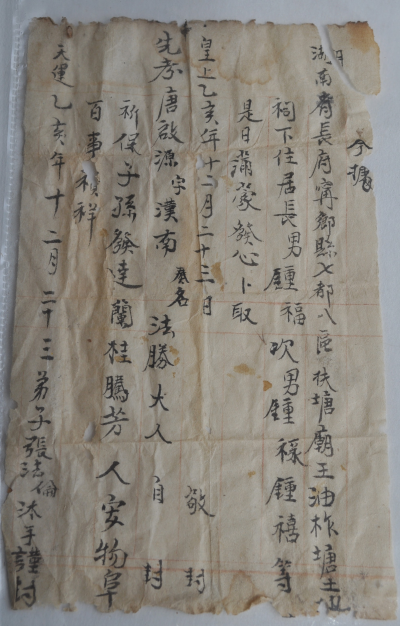 今據
湖南省長府寧鄉縣七都八區扶塘廟王油柞塘土
祠下住居長男鍾福次男鍾祿鍾禧等
是日 發心卜取
皇上乙亥年十二月二十三日 敬封
先考唐啟源字漢南 法勝大人 封
祈保子孫發達蘭桂騰芳人安物阜
百事禎祥
天運乙亥年十二月二十三弟子張法 沐手謹封